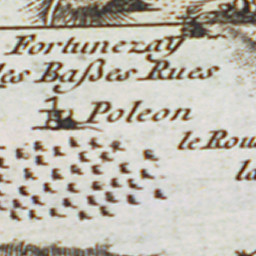 Fortunezay
les Baßes Rues
Poleon
le Rou
la